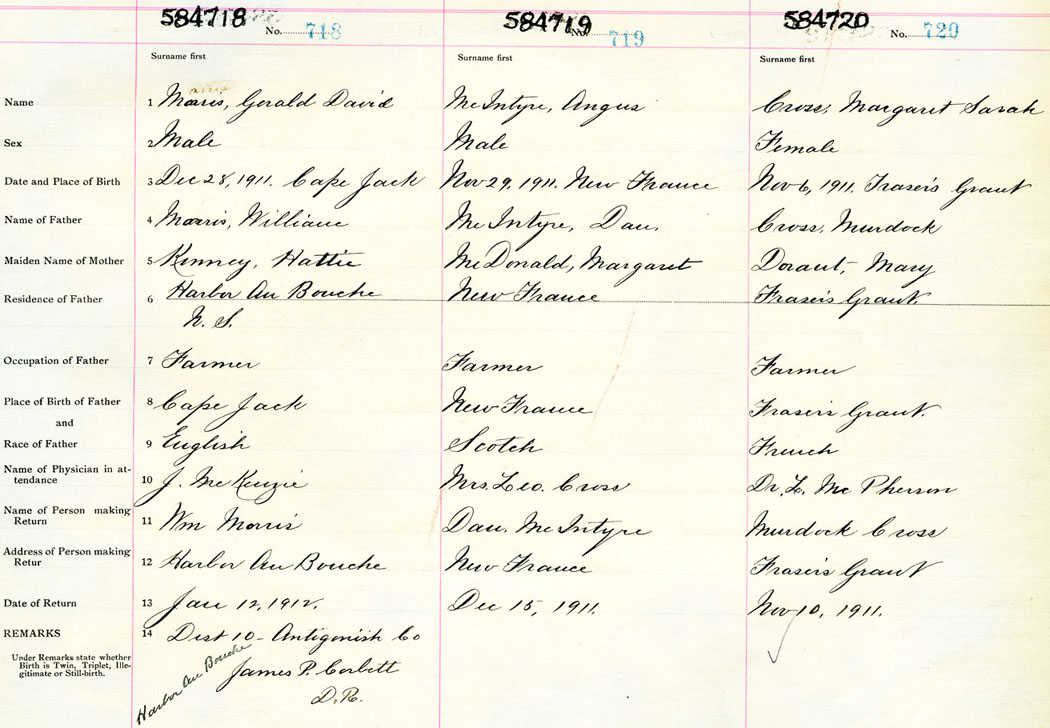 584718 584719 584720
No. 718 No. 719 No. 720
Surname first Surname first Surname first
Name 1 Morris, Gerald David McIntyre, Angus Cross, Margaret Sarah
Sex 2 Male Male Female
Date and Place of Birth 3 Dec 28, 1911. Cape Jack Nov 29, 1911. New France Nov 6, 1911. Frasers Grant
Name of Father 4 Morris, William McIntyre, Dan. Cross, Murdock
Maiden Name of Mother 5 Kinney, Hattie McDonald, Margaret Dorant, Mary
Residence of Father 6 Harbor Au Bouche New France Frasers Grant.
N. S.
Occupation of Father 7 Farmer Farmer Farmer
Place of Birth of Father 8 Cape Jack New France Frasers Grant.
and
Race of Father 9 English Scotch French
Name of Physician in at-
tendance 10 J. McKenzie Mrs. Leo. Cross Dr. L. McPherson
Name of Person making
Return 11 Wm Morris Dan. McIntyre Murdock Cross
Address of Person making
Retur 12 Harbor Au Bouche New France Frasers Grant
Date of Return 13 Jan 12, 1912. Dec 15, 1911. Nov 10, 1911.
REMARKS 14 Dist 10 - Antigonish Co
Under Remarks state whether
Birth is Twin, Triplet, Ille-
gitimate or Still-birth.
Harbor Au Bouche
James P. Corbett
D.R.